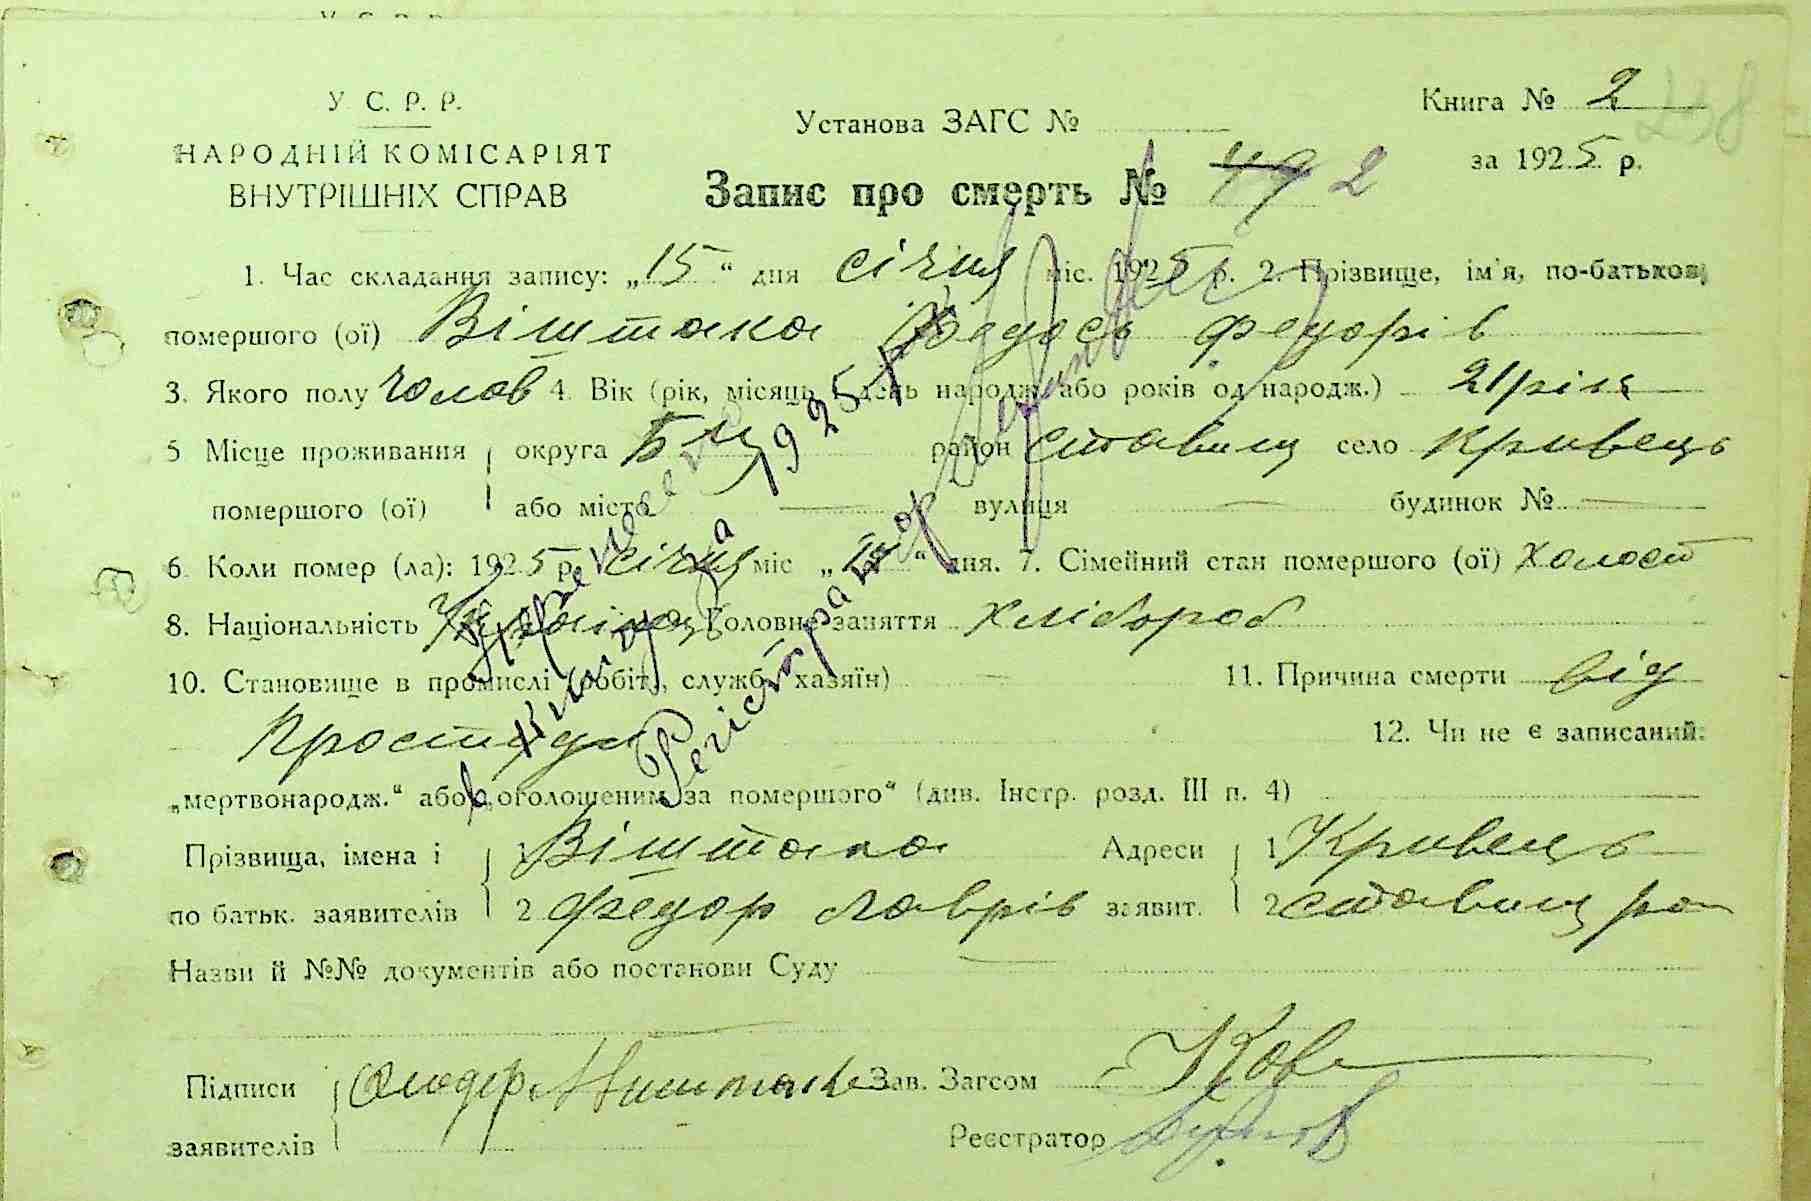 У С. Р. Р.
НАРОДНІЙ КОМІСАРІЯТ
ВНУТРІШНІХ СПРАВ
Установа ЗАГС №
Книга № 2
за 1925 р.
Запис про смерть № 2
1. Час складання запису: „15“ дня січня міс. 1925 р. 2. Прізвище, ім'я, по-батькові
помершого (ої) Віштака Федось Федорів
3. Якого полу чолов 4. Вік (рік, місяць і день народж. або років од народж.) 21 рік
5 Місце проживання округа БЦ район Ставищ село Кривець
помершого (ої) або місто вулиця будинок №
6. Коли помер (ла): 1925 р. січня міс „ “ дня. 7. Сімейний стан помершого (ої) холост
8. Національність Українець Головне заняття хлібороб
10. Становище в промислі (робіт., служб. хазяїн) 11. Причина смерти від
простуди 12. Чи не є записаний:
„мертвонародж.“ або „оголошеним за помершого“ (див. Інстр. розд. III п. 4)
Прізвища, імена і 1 Віштака Адреси 1 Кривець
по батьк. заявителів 2 Федор Лаврів заявит. 2 Ставищ ра
Назви й №№ документів або постанови Суду
Підписи Зав. Загсом
заявителів Реєстратор
Перенесено
в книгу за 1925 р
Регістратор